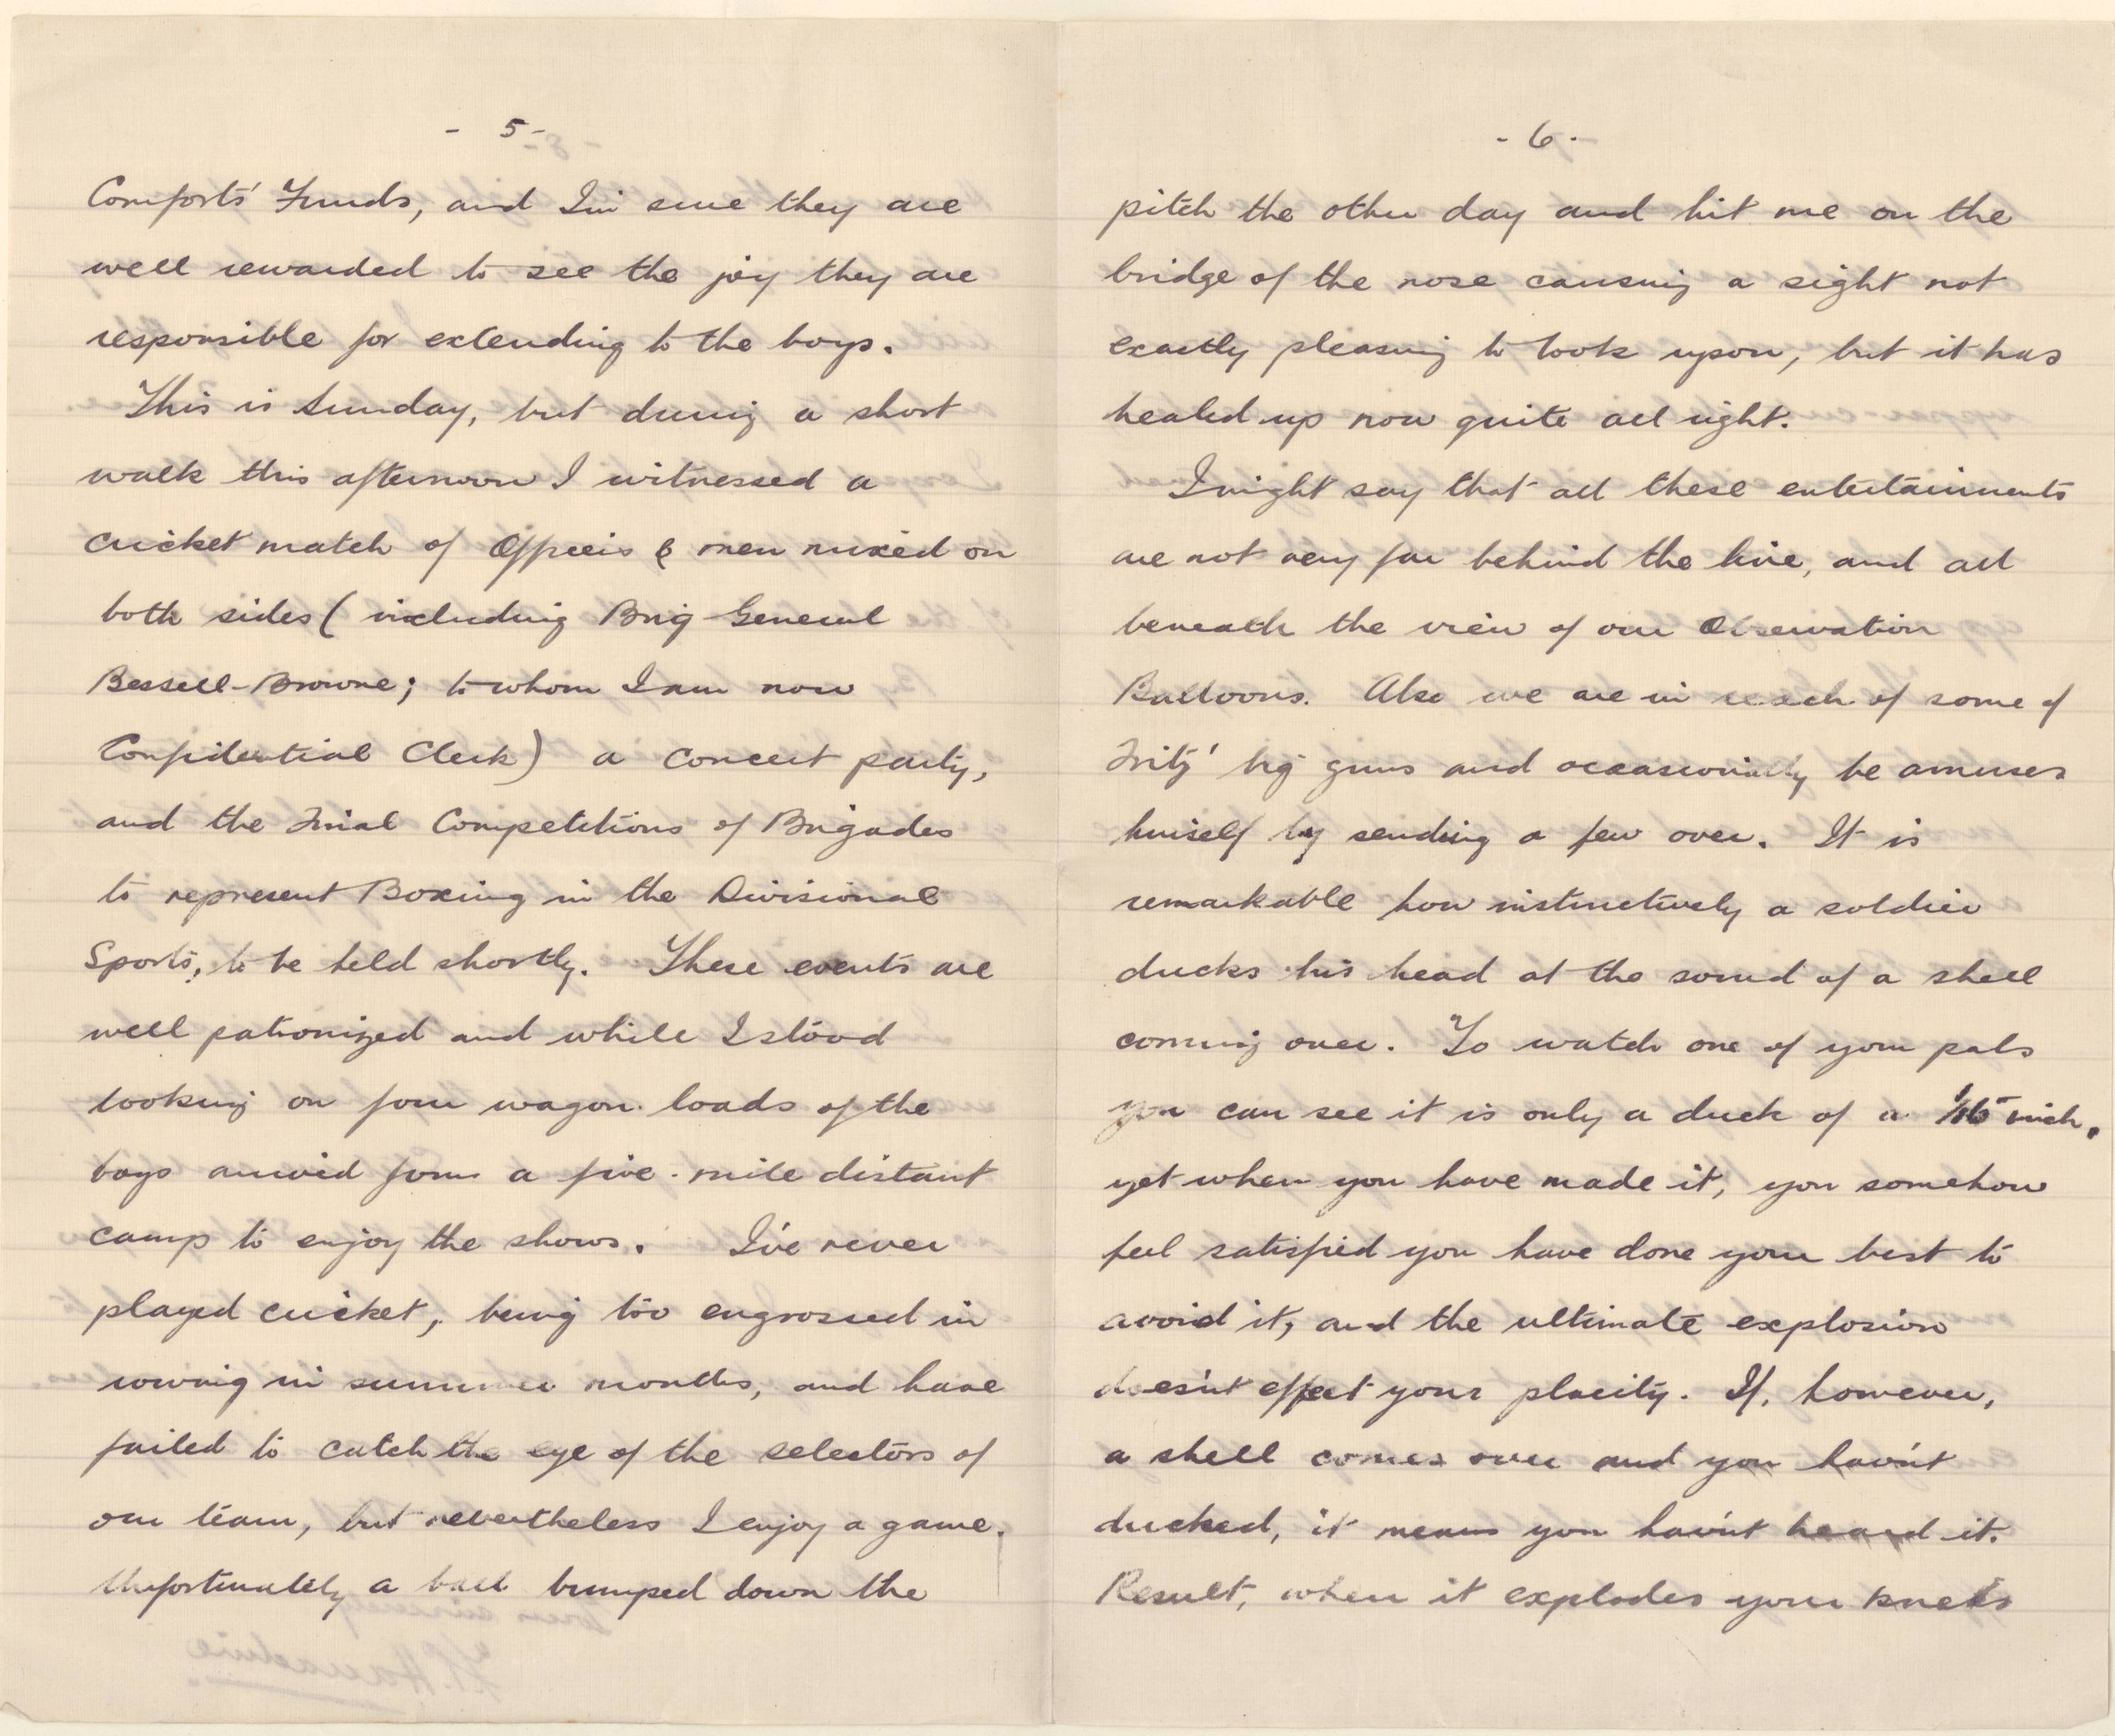 - 5 -
Comforts' Funds, and I'm sure they are
well rewarded to see the joy they are
responsible for extending to the boys.
This is Sunday, but during a short
walk this afternoon I witnessed a
cricket match of Officers & men mixed on
both sides (including Brig-General
Bessell-Browne; to whom I am now
Confidential Clerk) a concert party,
and the Final Competitions of Brigades
to represent Boxing in the Divisional
Sports, to be held shortly. These events are
well patronized and while I stood
looking on four wagon loads of the
boys arrived from a five-mile distant
camp to enjoy the shows. I've never
played cricket, being too engrossed in
rowing in summer months, and have
failed to catch the eye of the selectors of
our team, but nevertheless I enjoy a game.
Unfortunately a ball bumped down the
- 6 -
pitch the other day and hit me on the
bridge of the nose causing a sight not
exactly pleasing to look upon, but it has
healed up now quite all right.
I might say that all these entertainments
are not very far behind the line, and all
beneath the view of our Observation
Balloons. Also we are in reach of some of
Fritz' big guns and occassionally he amuses
himself by sending a few over. It is
remarkable how instinctively a soldier
ducks his head at the sound of a shell
coming over. To watch one of your pals
you can see it is only a duck of a 1/16 inch,
yet when you have made it, you somehow
feel satisfied you have done your best to
avoid it, and the ultimate explosion
doesn't effect your placity. If, however,
a shell comes over and you hav'nt
ducked, it means you hav'nt heard it.
Result, when it explodes your knees